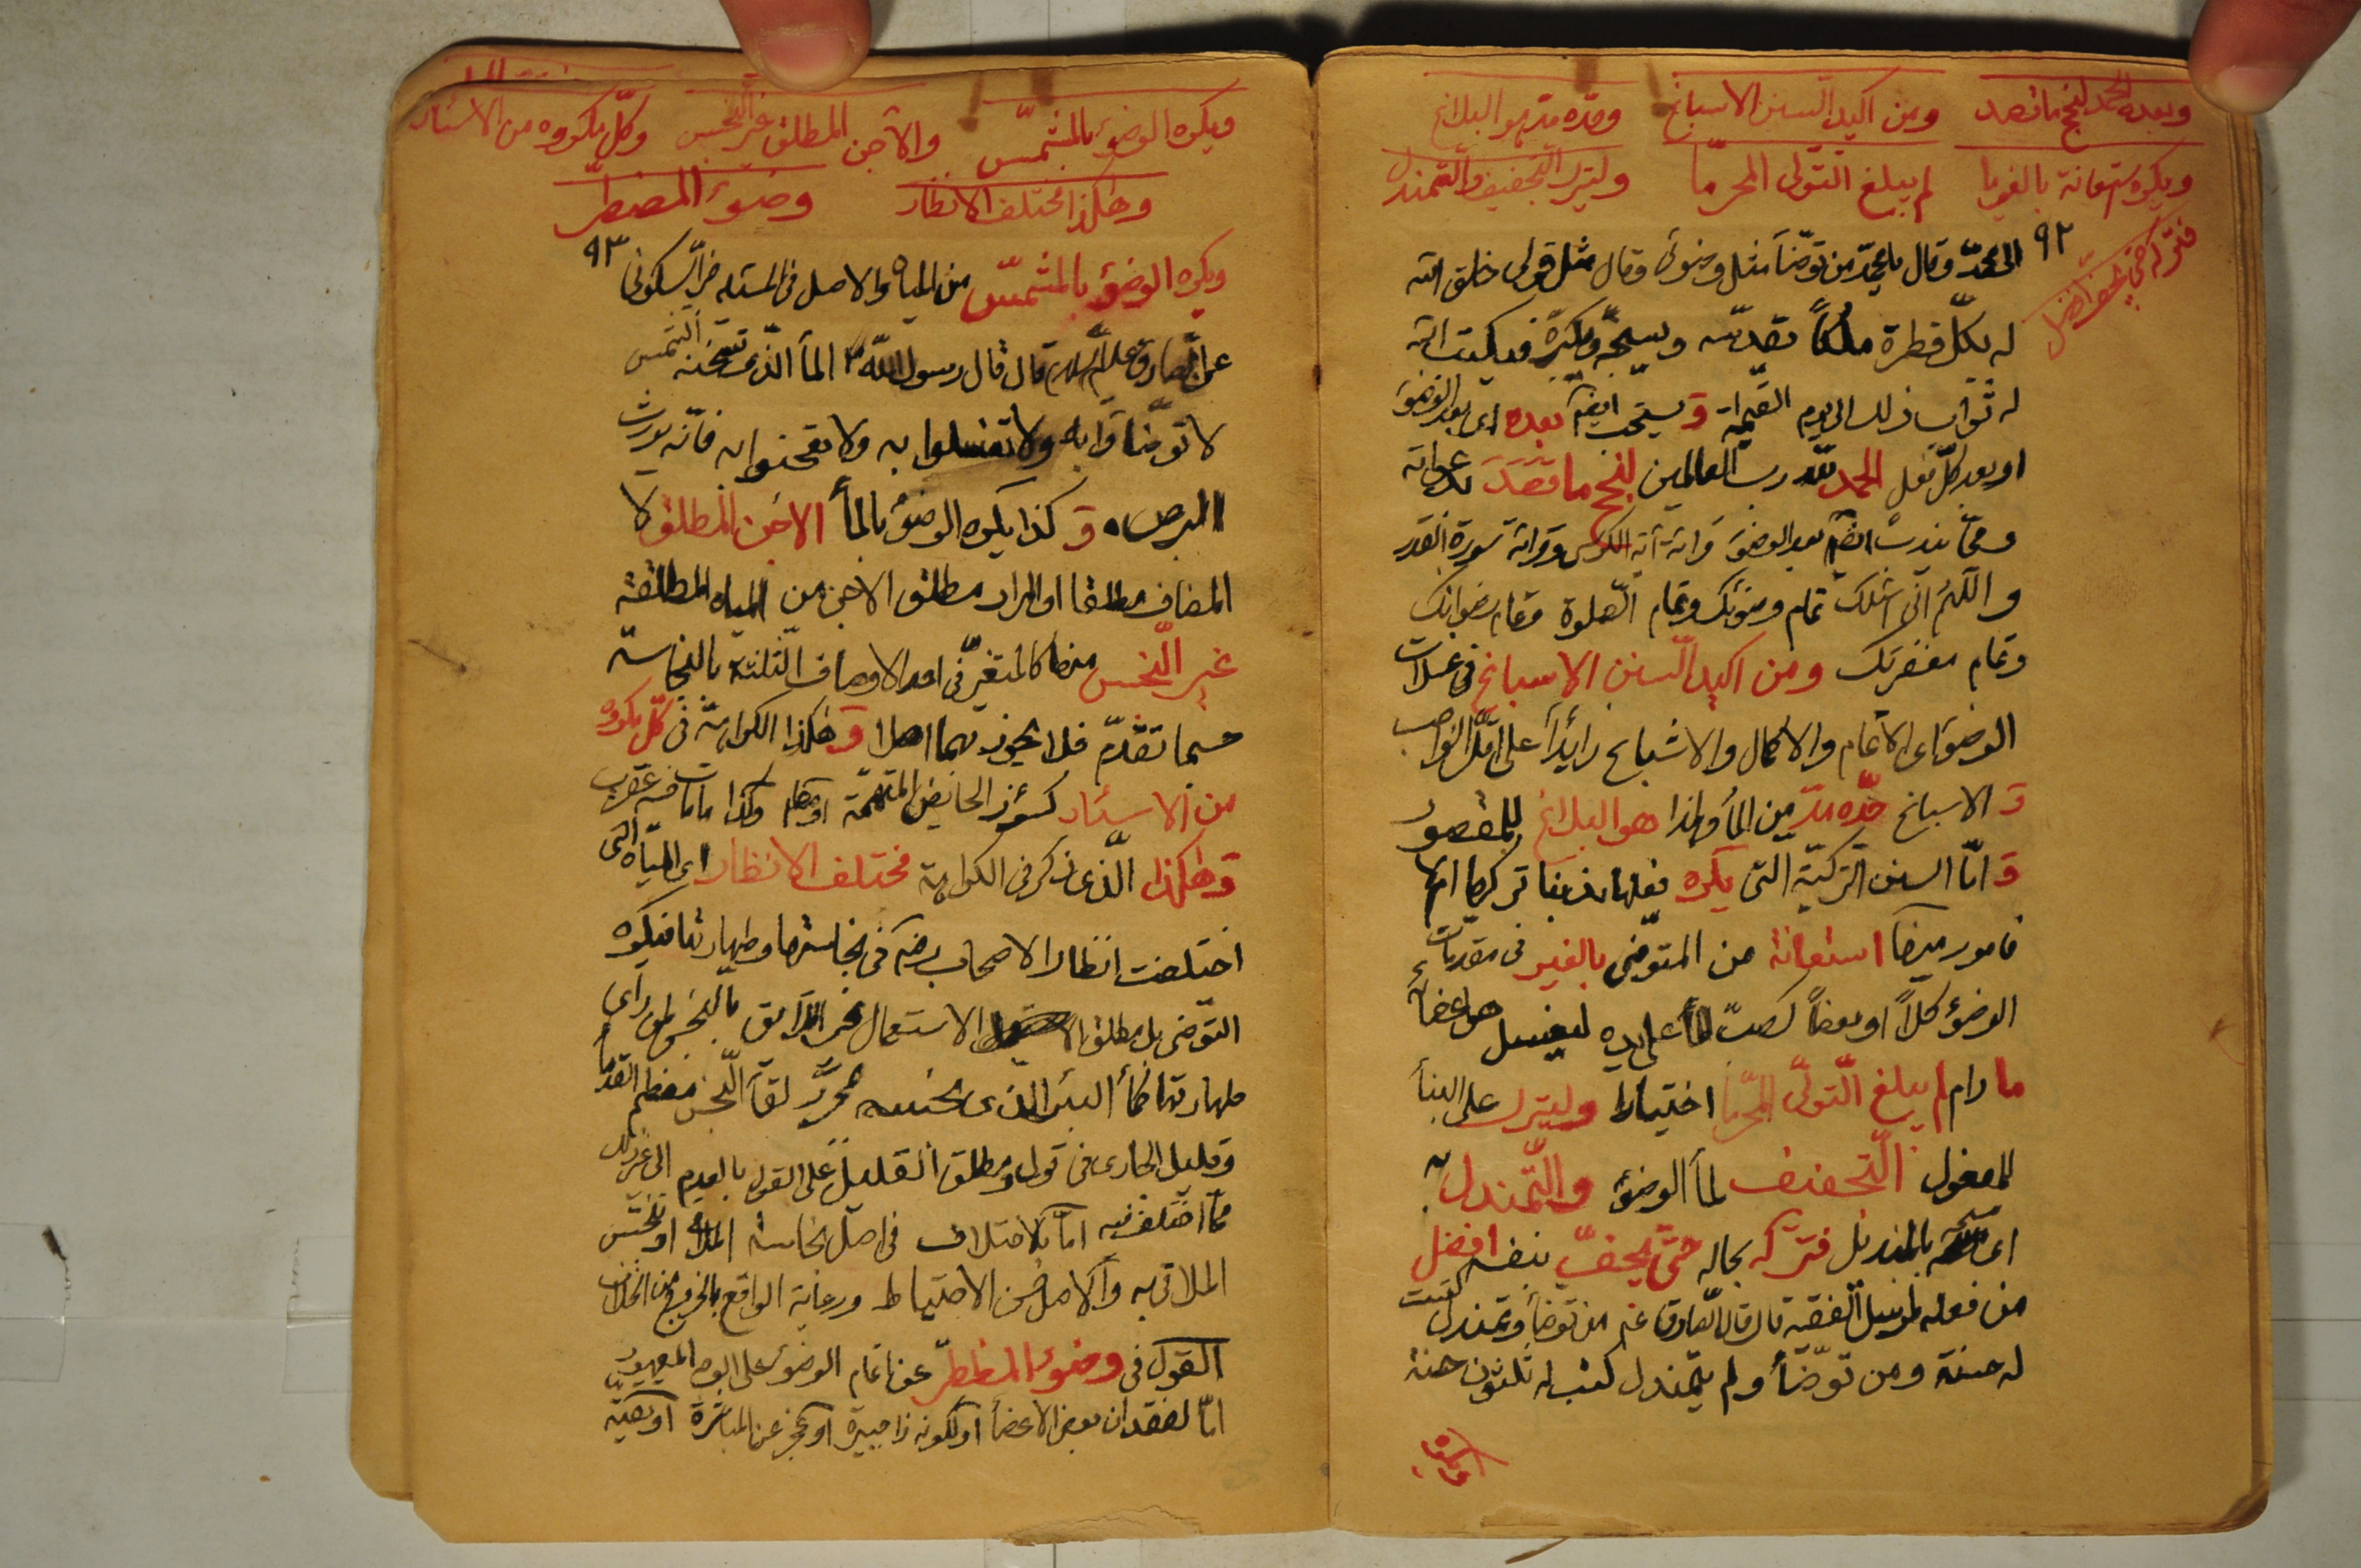 وبعده الحمد لنجح ما قصد ومن اكيد السنن الاسباغ وحده مد هو البلاغ
ويكره استعانة بالغير ما لم يبلغ التولى المحرما وليترك التجفيف والتمندل
فتركه حتى يجف افضل
٩٢
الى محمد وقال يا محمد من توضأ مثل وضوئى وقال مثل قولى خلق الله
له بكل قطرة ملكاً يقدسه ويسبحه ويكبره فيكتب الله
له ثواب ذلك الى يوم القيمة و يستحب ايضا بعده اى بعد الوضوء
او بعد كل فعل الحمد لله رب العالمين لنجح ما قصد
ومما يندب ايضا بعد الوضوء قرائة آية الكرسى وقرائة سورة القدر
واللهم انى اسئلك تمام وضوئك وتمام الصلوة وتمام رضوانك
وتمام مغفرتك ومن اكيد السنن الاسباغ فى غسلات
الوضوء اى الاتمام والاكمال والاشباع زائداً على اقل الواجب
و الاسباغ حده مد من المأ ولهذا هو البلاغ للمقصود
و امّا السنن التركية التى يكره فعلها
فامور منها استعانة من المتوضى بالغير فى مقدمات
الوضوء كلاً او بعضاً كصب المأ على يده ليغسل هو اعضاءه
ما دام لم يبلغ التولّى المحرّما اختيارا وليترك على البنأ
للمفعول التجفيف لمأ الوضوء والتمندل به
اى مسحه بالمنديل فتركه بحاله حتى يجفّ بنفسه افضل
من فعله لمرسل الفقيه قال قال الصادق ع م من توضأ وتمندل كتبت
له حسنة ومن توضأ ولم يتمندل كتب له ثلثون حسنة
ويكره الوضوء بالمشمّس والآجن المطلق غير النجس وكلّ مكروه من الاسئار
وهكذا مختلف الانظار وضوء المضطرّ
٩٣
ويكره الوضوء بالمشمّس من المياه والاصل فى المسئلة خبر السكونى
عن الصادق عليه السلام قال قال رسول الله ص المأ الذى تسخنه الشمس
لا توضأوا به ولا تغتسلوا به ولا تعجنوا به فانّه يورث
البرص و كذا يكره الوضوء بالمأ الآجن المطلق لا
المضاف مطلقا او المراد مطلق الآجن من المياه المطلقة
غير النّجس منها كالمتغيّر فى احد الاوصاف الثلثة بالنجاسة
حسبما تقدّم فلا يجوز بهما اصلا و هكذا الكراهة فى كلّ مكروه
من الاسئار كسؤر الحائض المتهمة وكذا ما مات فيه عقرب
وهكذا الّذى ذكر فى الكراهة مختلف الانظار اى المياه التى
اختلفت انظار الاصحاب رضه فى نجاستها وطهارتها فيكره
التوضى بل مطلق الاستعمال
طهارتها كمأ البئر الذى بمجرّد لقأ النّجس معظم القدمأ
وقليل الجارى فى قول ومطلق القليل على القول بالعدم الى غير ذلك
ممّا اختلف فيه امّا لاختلاف فى اصل نجاسة المأ او تنجّس
الملاقى به والاصل حسن الاحتياط ورعاية الواقع بالخروج من الخلاف
القول فى وضوء المضطرّ عن اتمام الوضوء على الوجه المعهود
امّا لفقدان بعض الاعضأ او لكونه ذا جبيرة او عجز عن المباشرة او تقيّة